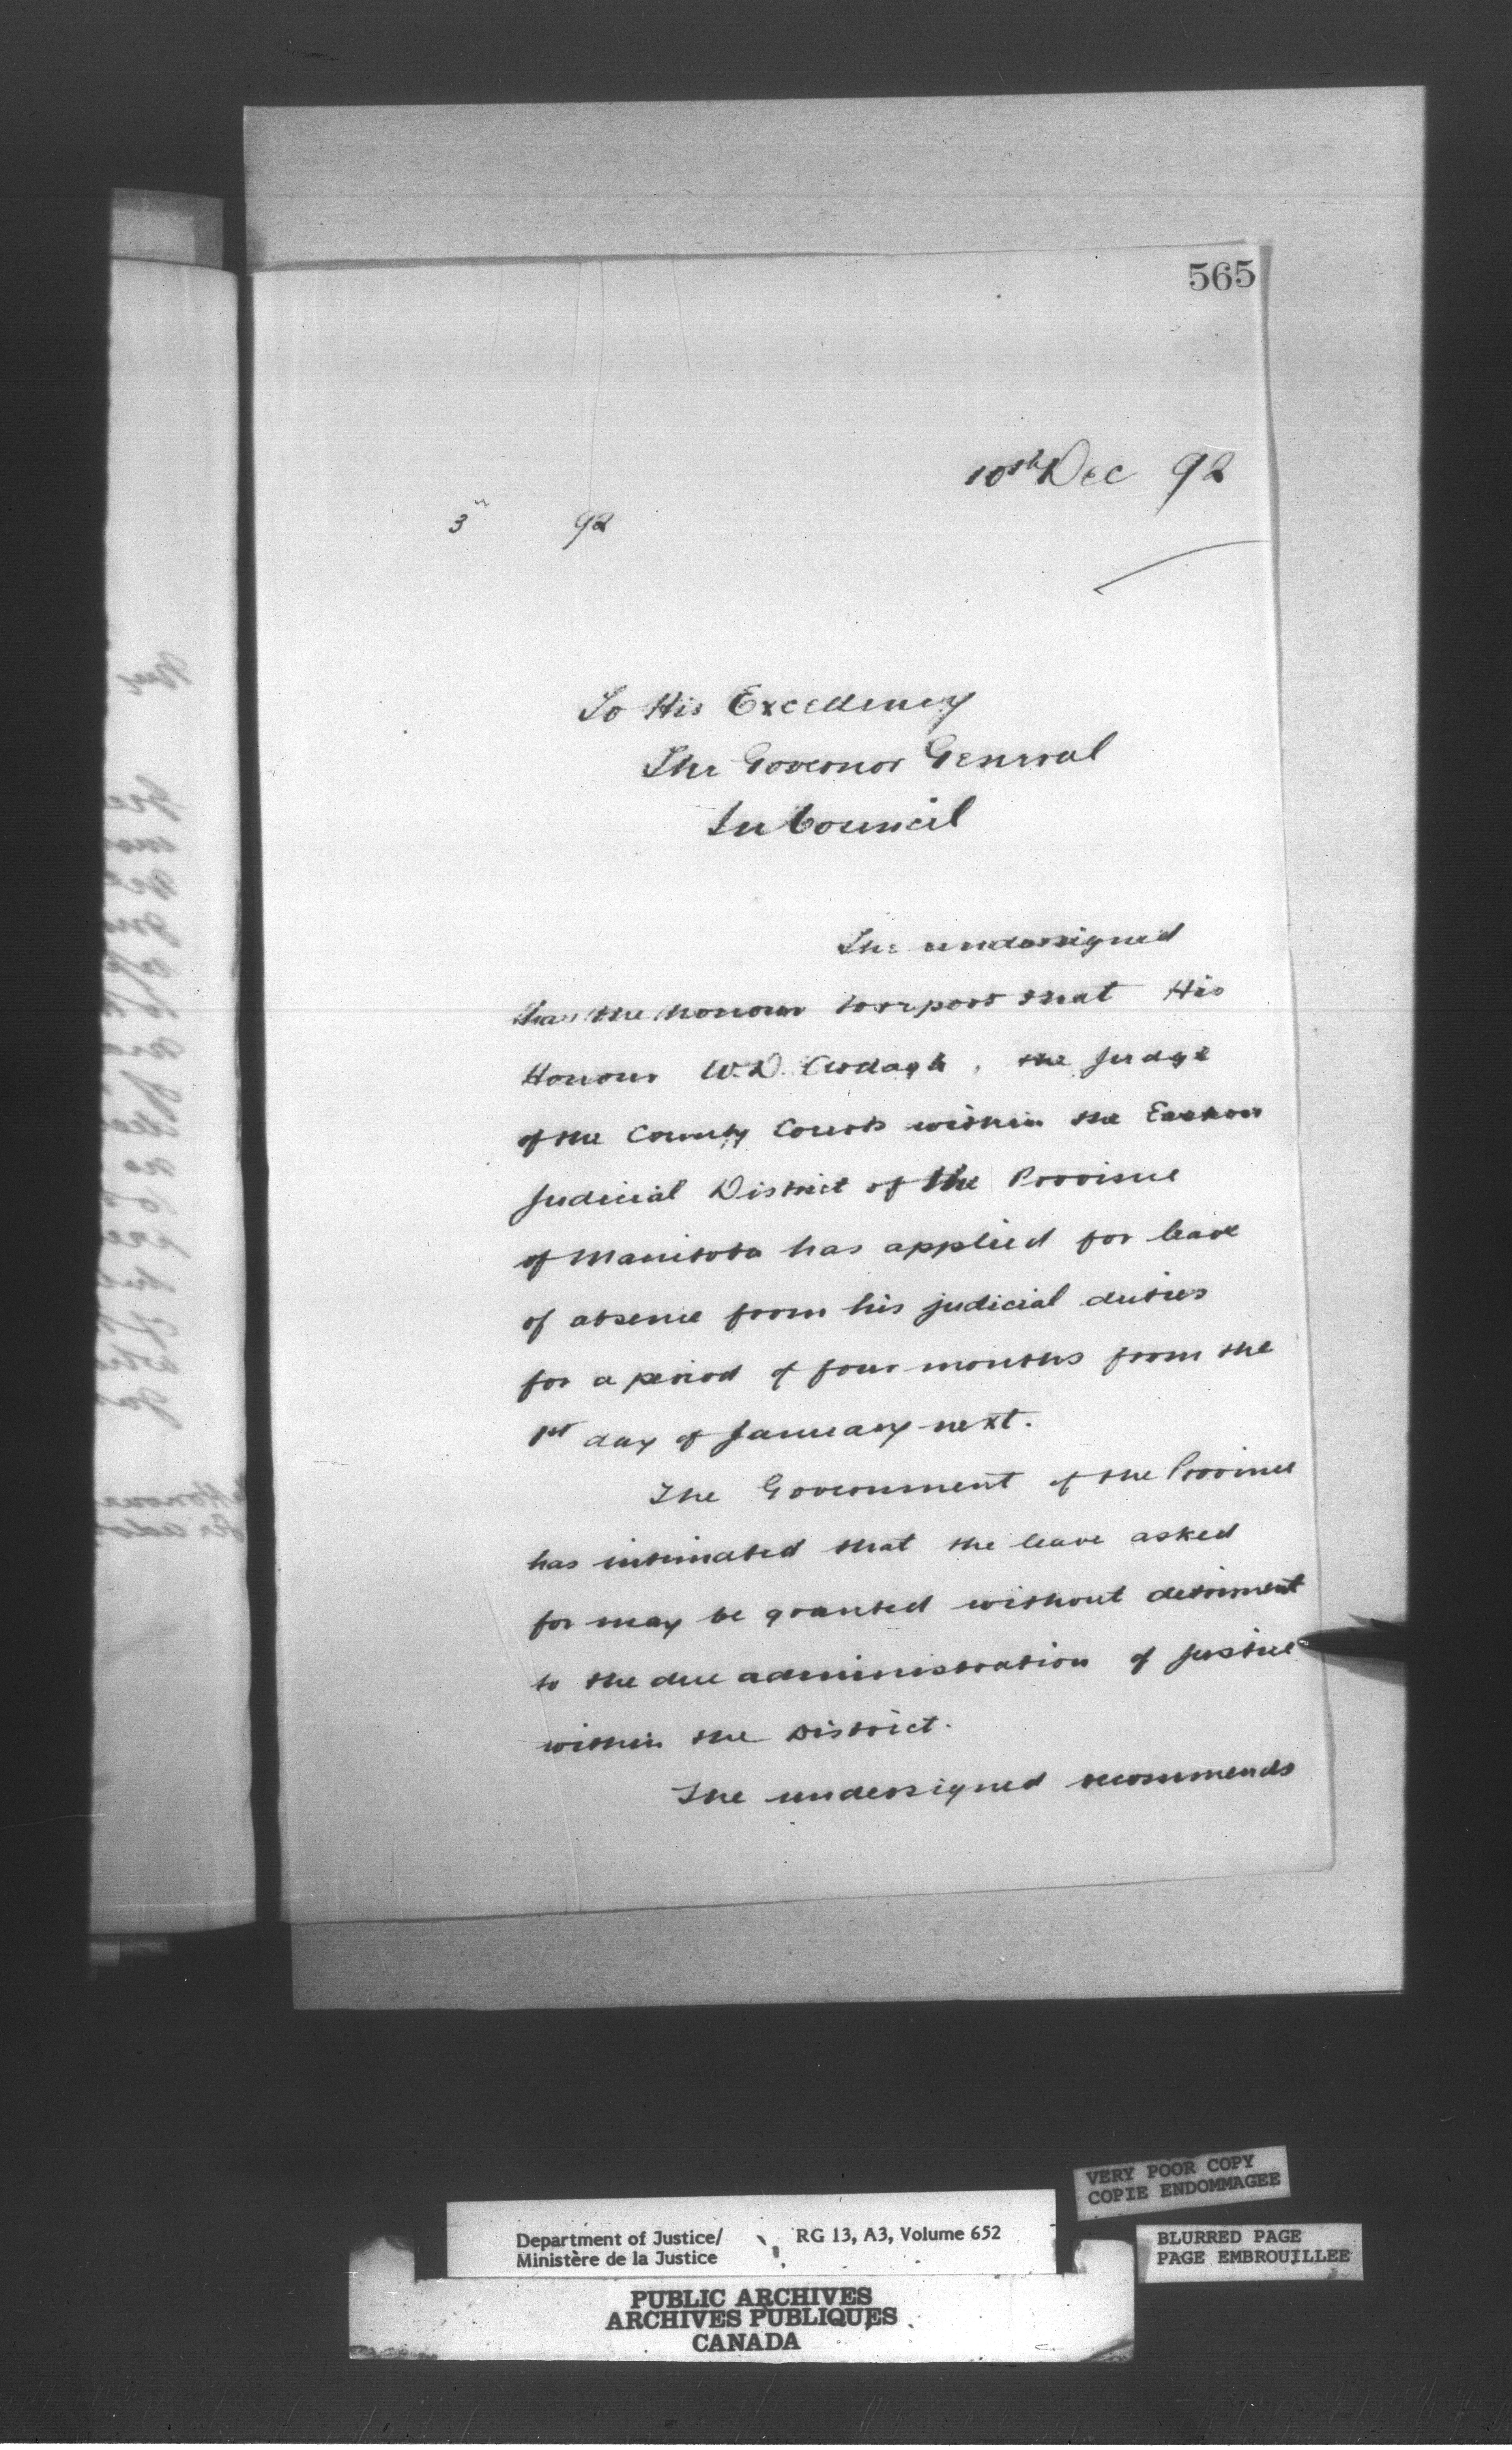 565
10th Dec 92
3 92
To His Excellency
The Governor General
In Council
The undersigned
has the honour to report that His
Honour W.D. Ardagh, the Judge
of the County Courts within the Eastern
Judicial District of the Province
of Manitoba has applied for leave
of absence from his judicial duties
for a period of four months from the
1st day of January next.
The Government of the Province
has intimated that the leave asked
for may be granted without detriment
to the due administration of justice
within the District.
The undersigned recommends
VERY POOR COPY
COPIE ENDOMMAGEE
Department of Justice/
Ministère de la Justice
RG 13, A3, Volume 652
BLURRED PAGE
PAGE EMBROUILLEE
PUBLIC ARCHIVES
ARCHIVES PUBLIQUES
CANADA